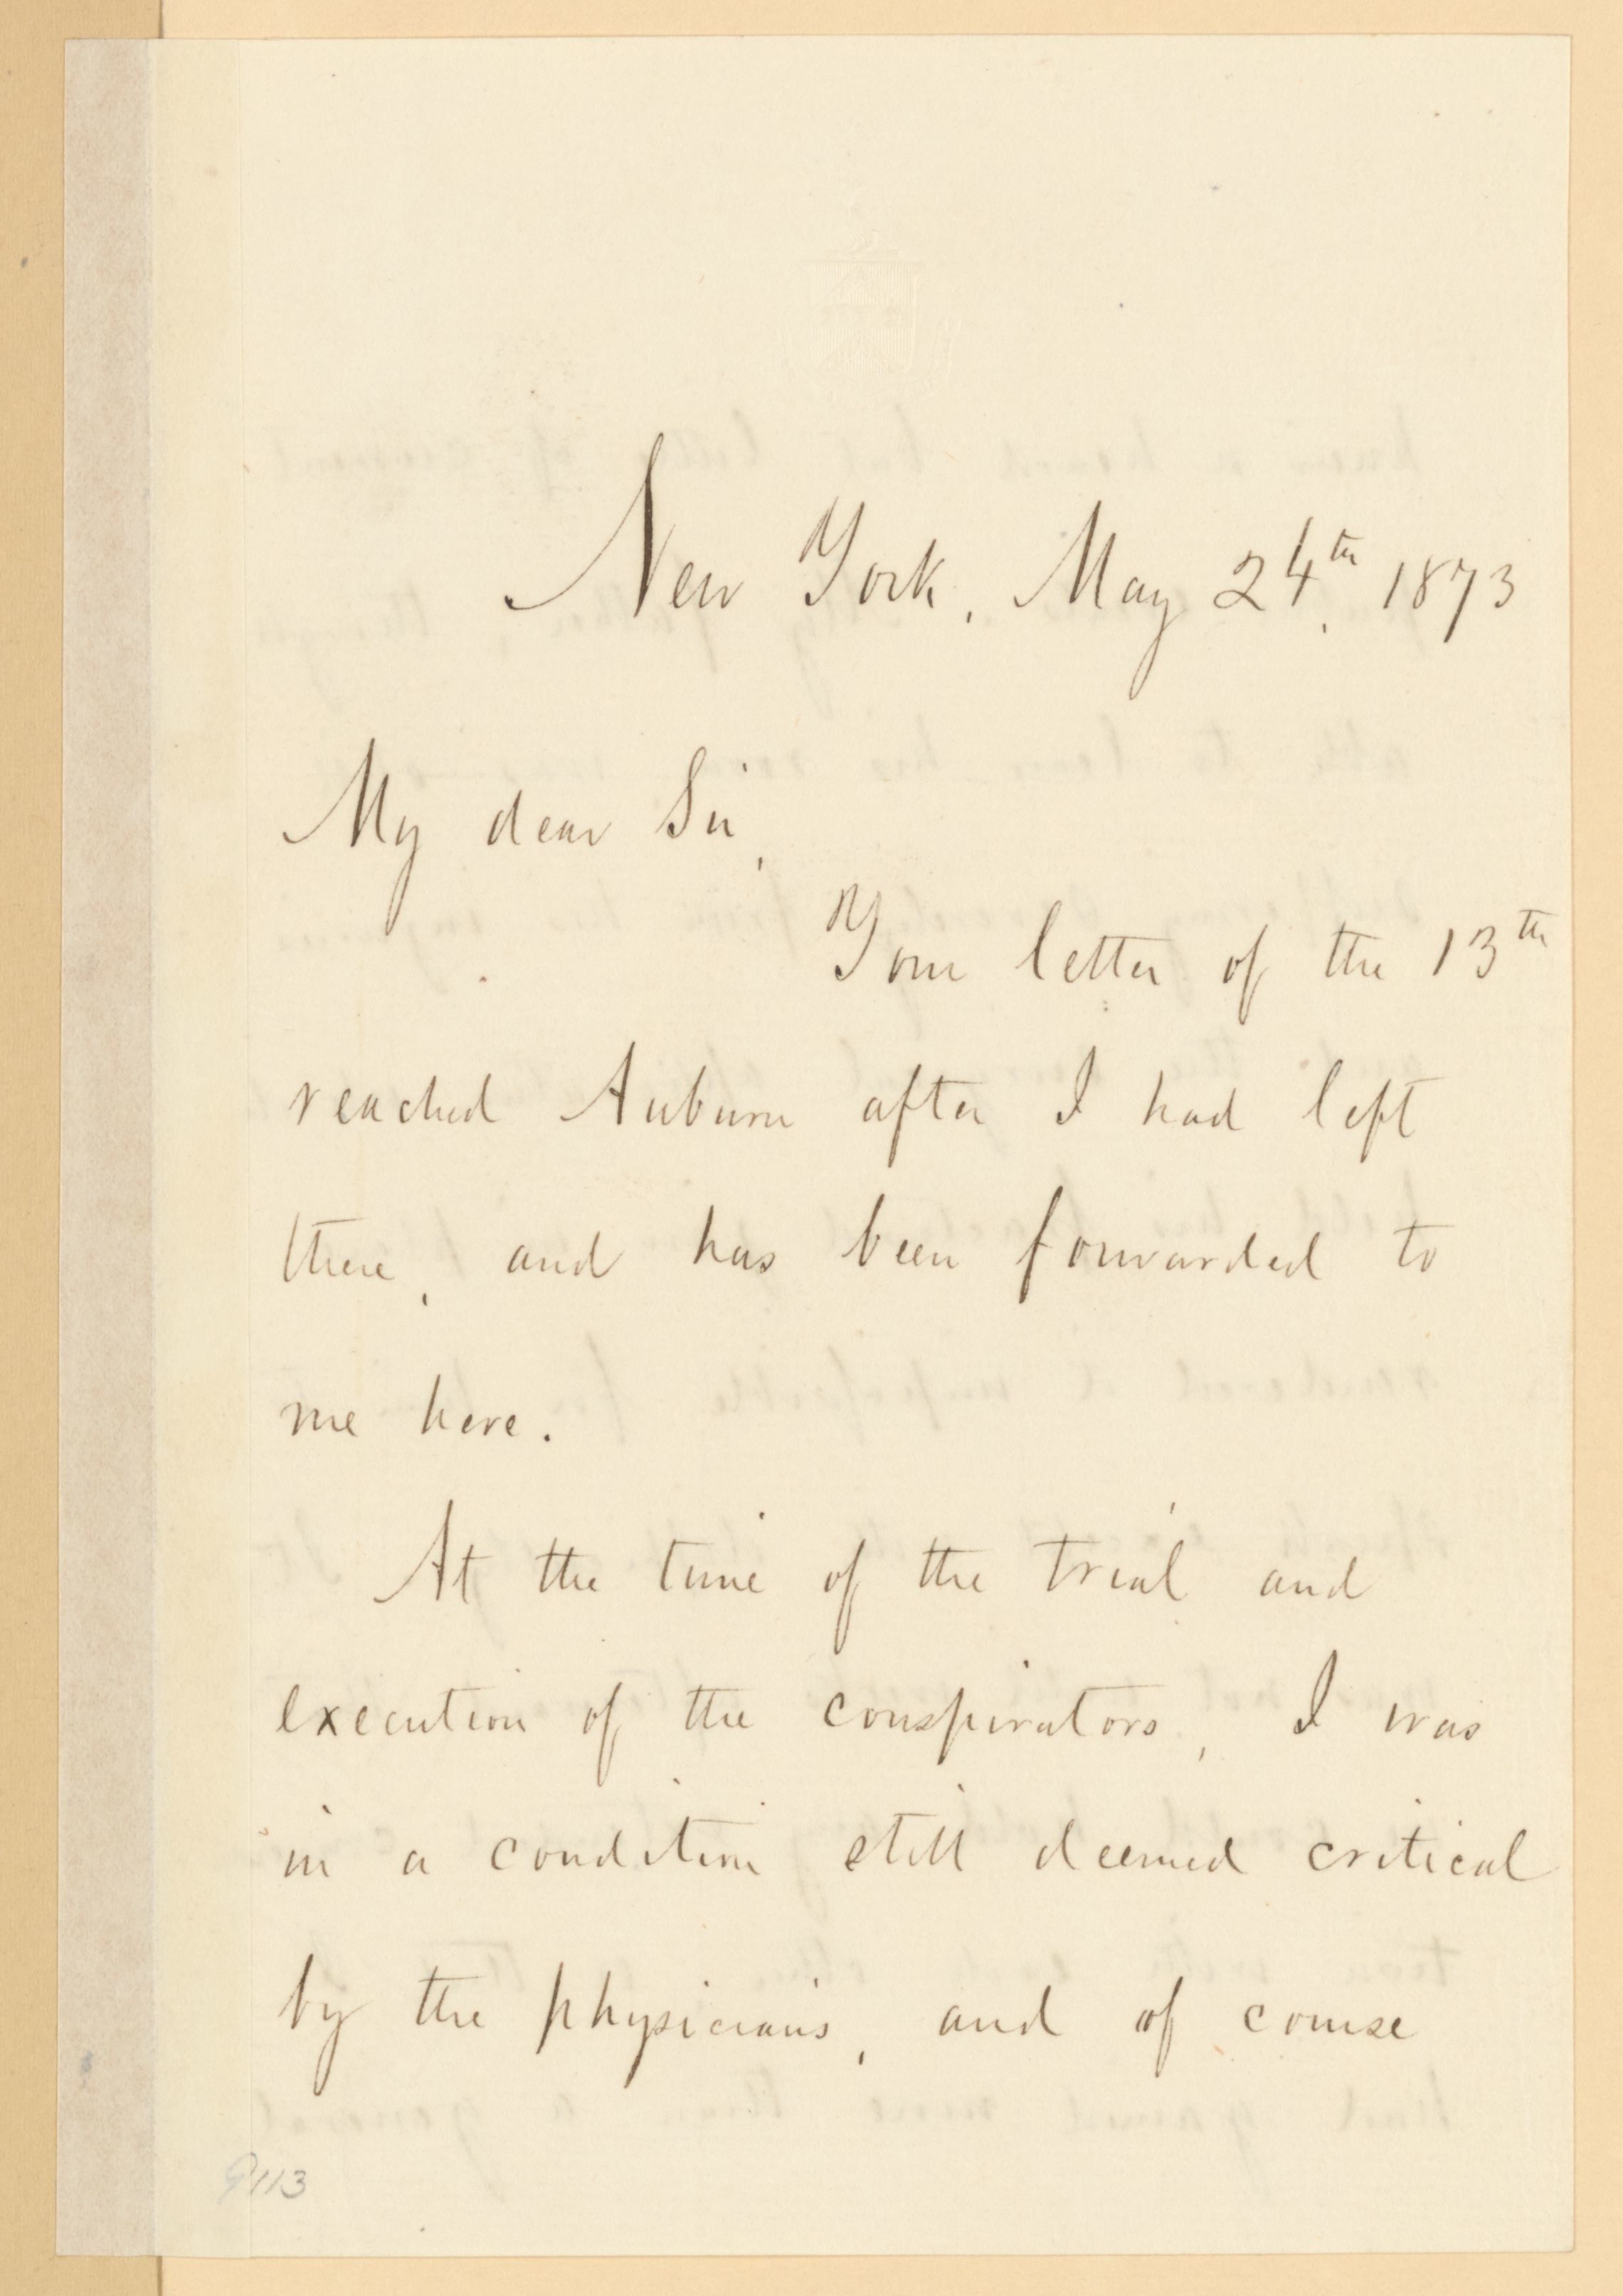 New York, May 24th, 1873
My dear Sir,
Your letter of the 13th
reached Auburn after I had left
there, and has been forwarded to
me here.
At the time of the trial and
execution of the conspirators, I was
in a condition still deemed critical
by the physicians, and of course
9113